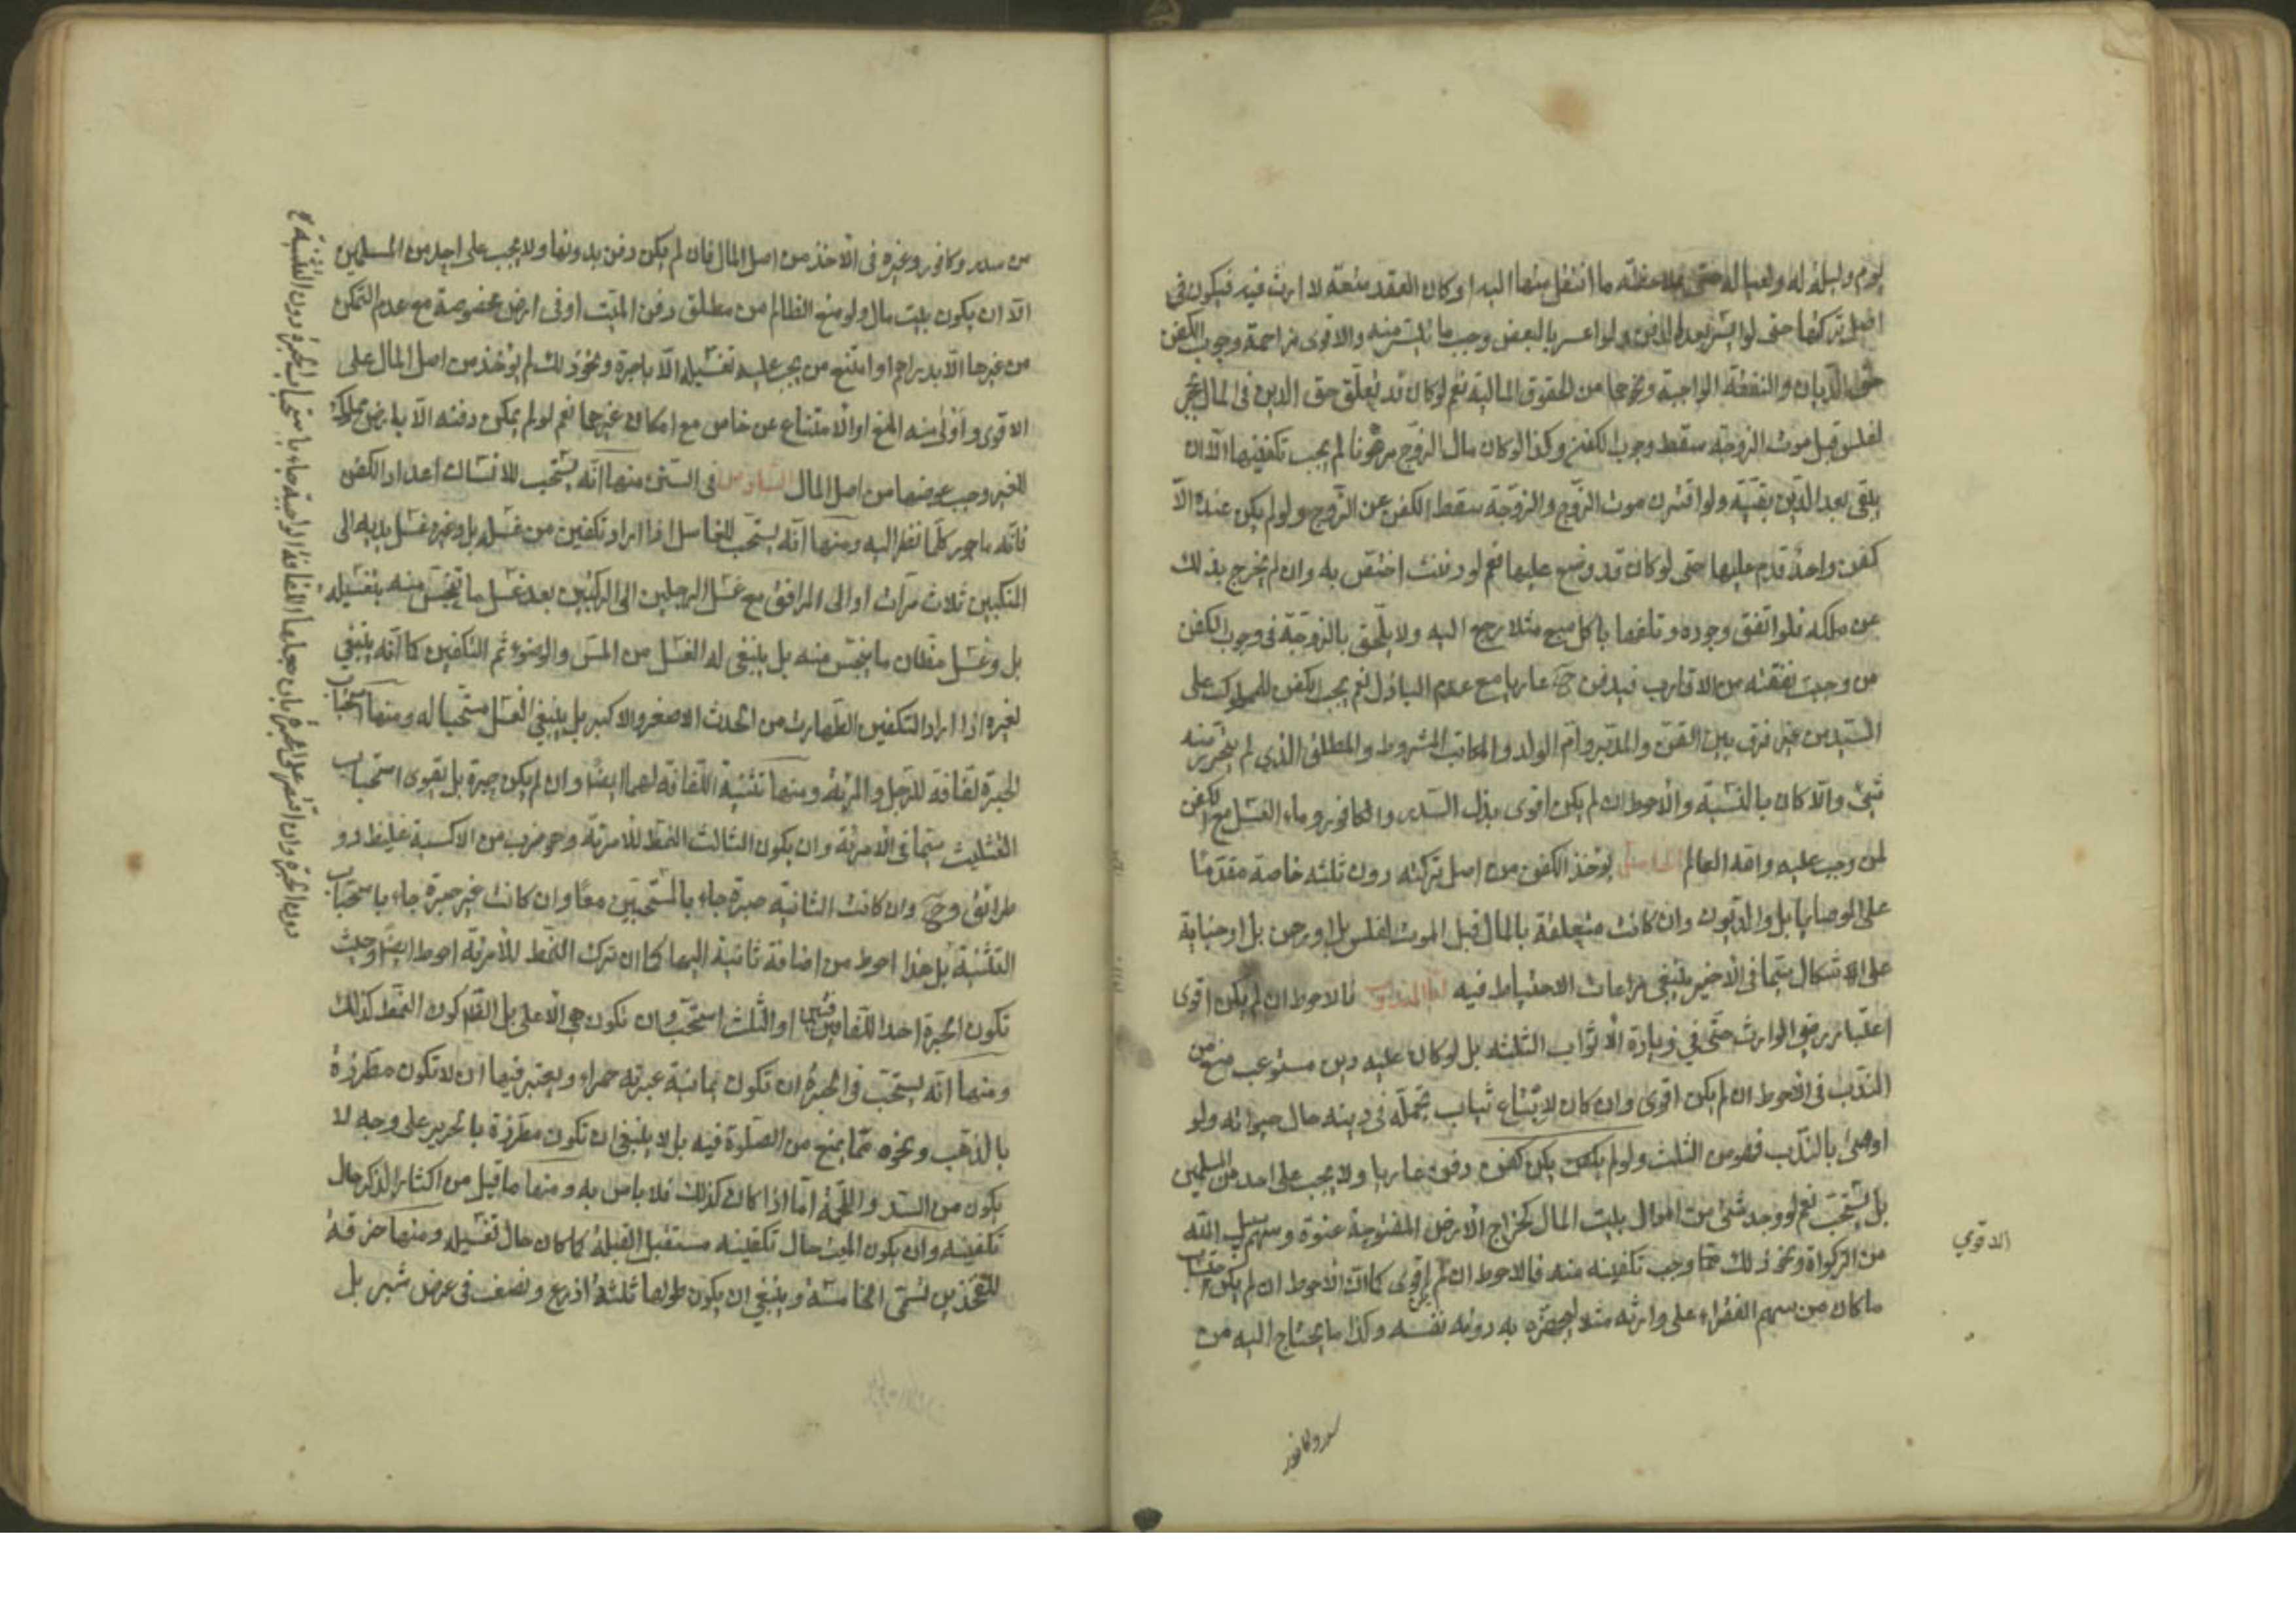 يوم وليلة له ولعياله حتى ملاحظة ما انتقل منها اليه او كان العقد متعة لا ارث فيه فيكون في
اصل تركتها حتى لو ايسر بعد الدفن ولو اعسر بالبعض وجب ما تيسر منه والاقوى مزاحمة وجوب الكفن
حق الديان والنفقة الواجبة ونحوها من الحقوق المالية نعم لو كان قد تعلق حق الدين في المال بحجر
لفلس قبل موت الزوجة سقط وجوب الكفن وكذا لو كان مال الزوج مرهونا لم يجب تكفينها الا ان
يبقى بعد الدين بقيّة ولو اقترن موت الزوج والزوجة سقط الكفن عن الزوج ولو لم يكن عنده الا
كفن واحد قدم عليها حتى لو كان قد وضع عليها نعم لو دفنت اختص به وان لم يخرج بذلك
عن ملكه فلو اتفق وجوده وتلفها باكل سبع مثلا رجع اليه ولا يلحق بالزوجة في وجوب الكفن
من وجبت نفقته من الاقارب فيدفن ح عاريا مع عدم الباذل نعم يجب الكفن للمملوك على
السيد من غير فرق بين القن والمدبر وام الولد والمكاتب المشروط والمطلق الذي لم يتحرر منه
شيء والا كان بالنسبة والاحوط ان لم يكن اقوى بذل السدر والكافور وماء الغسل مع الكفن
لمن وجب عليه والله العالم الخامس يؤخذ الكفن من اصل تركته دون ثلثه خاصة مقدما
على الوصايا بل والديون وان كانت متعلقة بالمال قبل الموت لفلس بل او رهن بل او جناية
على الاشكال سيما في الاخير ينبغي مراعات الاحتياط فيه اما المندوب فالاحوط ان لم يكن اقوى
اعتبار رضى الوارث حتى في زيادة الاثواب الثلثة بل لو كان عليه دين مستوعب منع من
الندب في الاحوط ان لم يكن اقوى وان كان لا يتباع ثياب تجمله في دينه حال حيواته ولو
اوصى بالندب فهو من الثلث ولو لم يكفن يكن كفن دفن عاريا ولا يجب على احد من المسلمين
بل يستحب نعم لو وجد شيء من اموال بيت المال كخراج الارض المفتوحة عنوة وسهم سبيل الله
من الزكواة ونحو ذلك مما وجب تكفينه منه فالاحوط ان لم اقوى كما ان الاحوط ان لم يكن
ما كان من سهم الفقراء على وارثه مثلا ليجهزه به دونه نفسه وكذا ما يحتاج اليه من
الاقوي
سدر وكافور
من سدر وكافور وغيره في الاخذ من اصل المال فان لم يكن دفن بدونها ولا يجب على احد من المسلمين
الا ان يكون بيت مال ولو منع الظالم من مطلق دفن الميت او في ارض مخصوصة مع عدم التمكن
من غيرها الا بدراهم او امتنع من يجب عليه تغسيله الا باجرة ونحو ذلك لم يؤخذ من اصل المال على
الاقوى واولى منه المنع او الامتناع عن خاص مع امكان غيرها نعم لو لم يمكن دفنه الا بارض مملوكة
للغير وجب عوضها من اصل المال السادس في السنن منها انه يستحب للانسان اعداد الكفن
فانه ماجور كلما نظر اليه ومنها انه يستحب للغاسل اذا اراد تكفين من غسله بل وغيره غسل يديه الى
المنكبين ثلاث مرات او الى المرافق مع غسل الرجلين الى الركبتين بعد غسل ما تنجس منه بتغسيله
بل وغسل مظان ما ينجس منه بل ينبغي له الغسل من المس والوضوء ثم التكفين كما انه ينبغي
لغيره اذا اراد التكفين الطهارت من الحدث الاصغر والاكبر بل ينبغي الغسل مستحبا له ومنها استحباب
الحبرة لفافة للرجل والمرئة ومنها تثنية اللفافة لهما ايضا وان لم يكن حبرة بل يقوى استحباب
التثليث سيما في الامرئة وان يكون الثالث النمط للامرئة وهو ضرب من الاكسية غليظ ذو
طرائق وح وان كانت الثانية حبرة جاء بالمستحبين معا وان كانت غير حبرة جاء باستحباب
التثنية بل هذا احوط من اضافة ثانية اليها كما ان ترك النمط للامرئة احوط ايضا وحيث
تكون الحبرة احد اللفافتين او الثلث استحب ان تكون هي الاعلى بل الظاهر كون النمط كذلك
ومنها انه يستحب في الحبرة ان تكون يمانية عبرية حمراء ويعتبر فيها ان لا تكون مطرزة
بالذهب ونحوه مما يمنع من الصلوة فيه بل لا ينبغي ان تكون مطرزة بالحرير على وجه لا
يكون من السدا واللحمة اما اذا كان كذلك فلا باس به ومنها ما قيل من اكثار الذكر حال
تكفينه وان يكون الميت حال تكفينه مستقبل القبلة كما كان حال تغسيله ومنها خرقة
للفخذين تسمى الخامسة وينبغي ان يكون طولها ثلثة اذرع ونصف في عرض شبر بل
دون الحبرة وان اقتصر على الحبرة بان جعلها اللفافة الواجبة جاء باستحباب الحبرة دون التثنية